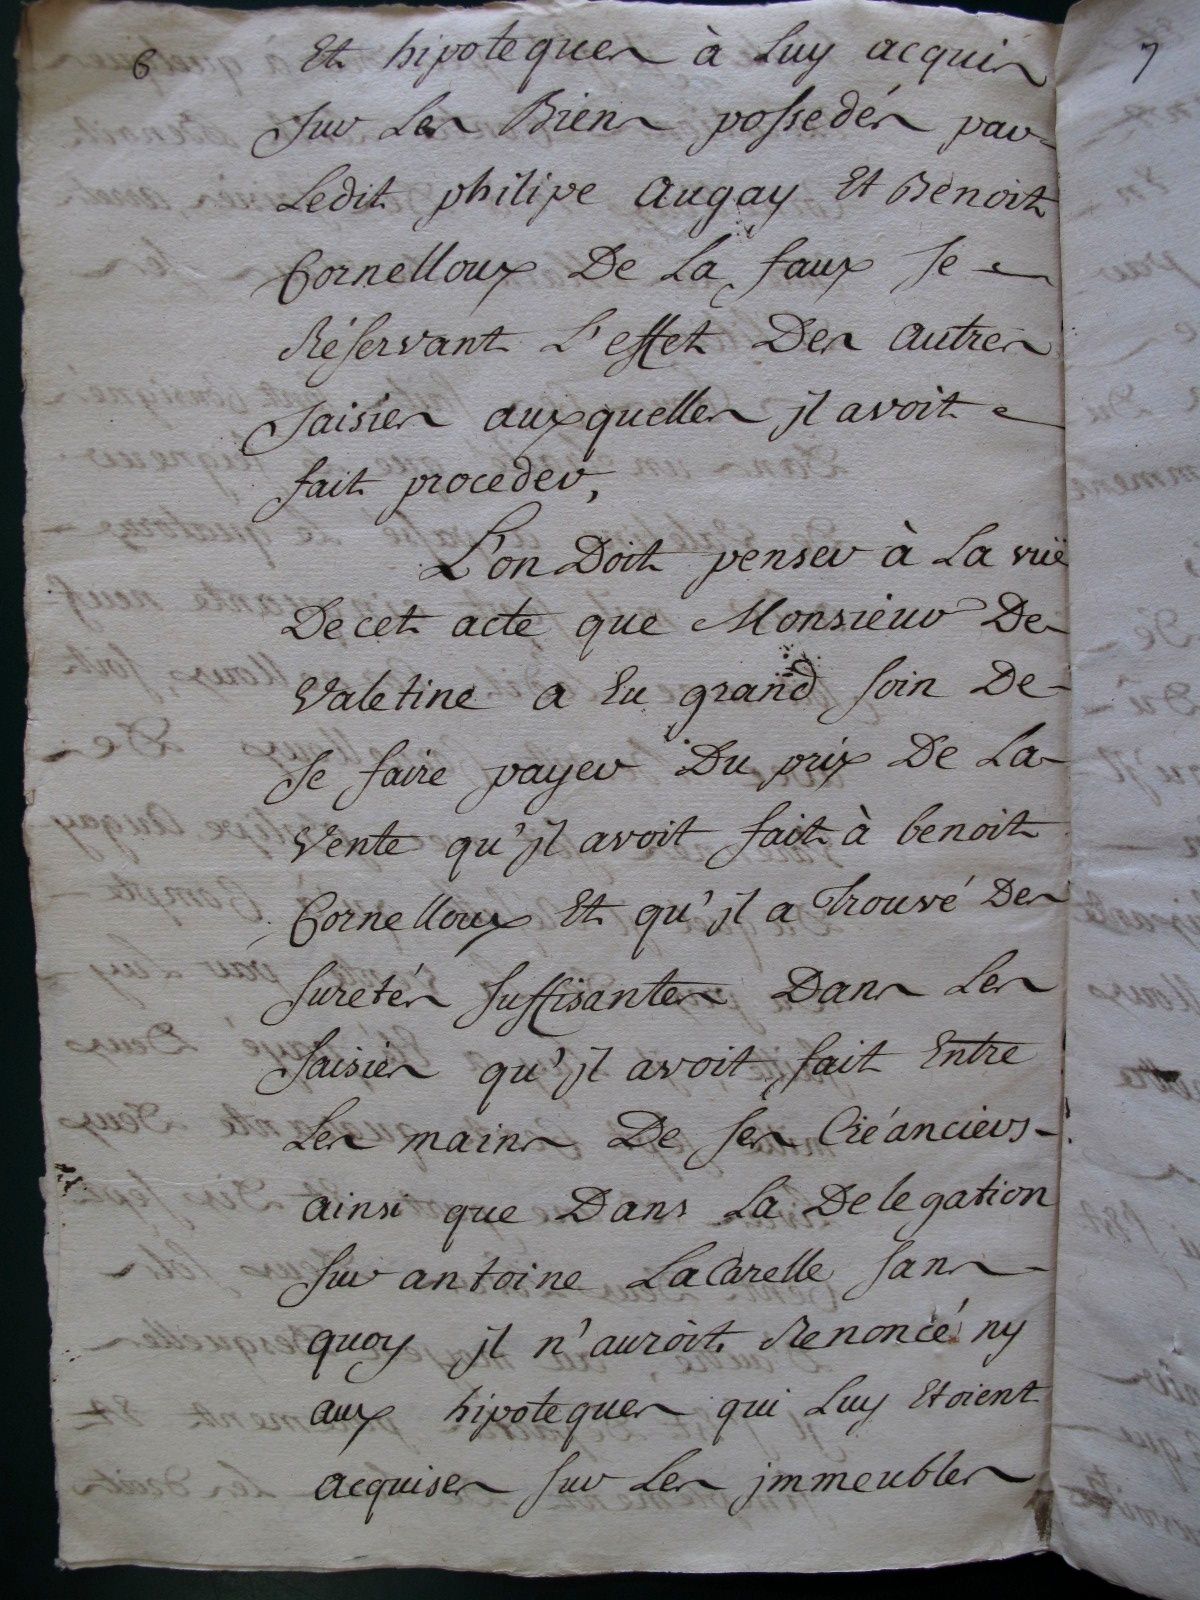 6
Et hipoteques à Luy acquis
sur Les Biens possedés par
Ledit philipe Augay Et Benoit
Cornelloux De La faux se
Réservant L'effet Des autres
saisies auxquelles jl avoit
fait proceder,
L'on Doit penser à La vuë
De cet acte que Monsieur De
Valetine a Eu grand soin De
se faire payer Du prix De La
Vente qu'jl avoit fait à benoit
Cornelloux Et qu'jl a Trouvé Des
suretés suffisantes Dans Les
saisies qu'jl avoit fait Entre
Les mains De ses Créanciers
ainsi que Dans La Delegation
sur antoine LaCarelle sans
quoy jl n'auroit Renoncé ny
aux hipoteques qui Luy Etoient
acquises sur Les jmmeubles
7